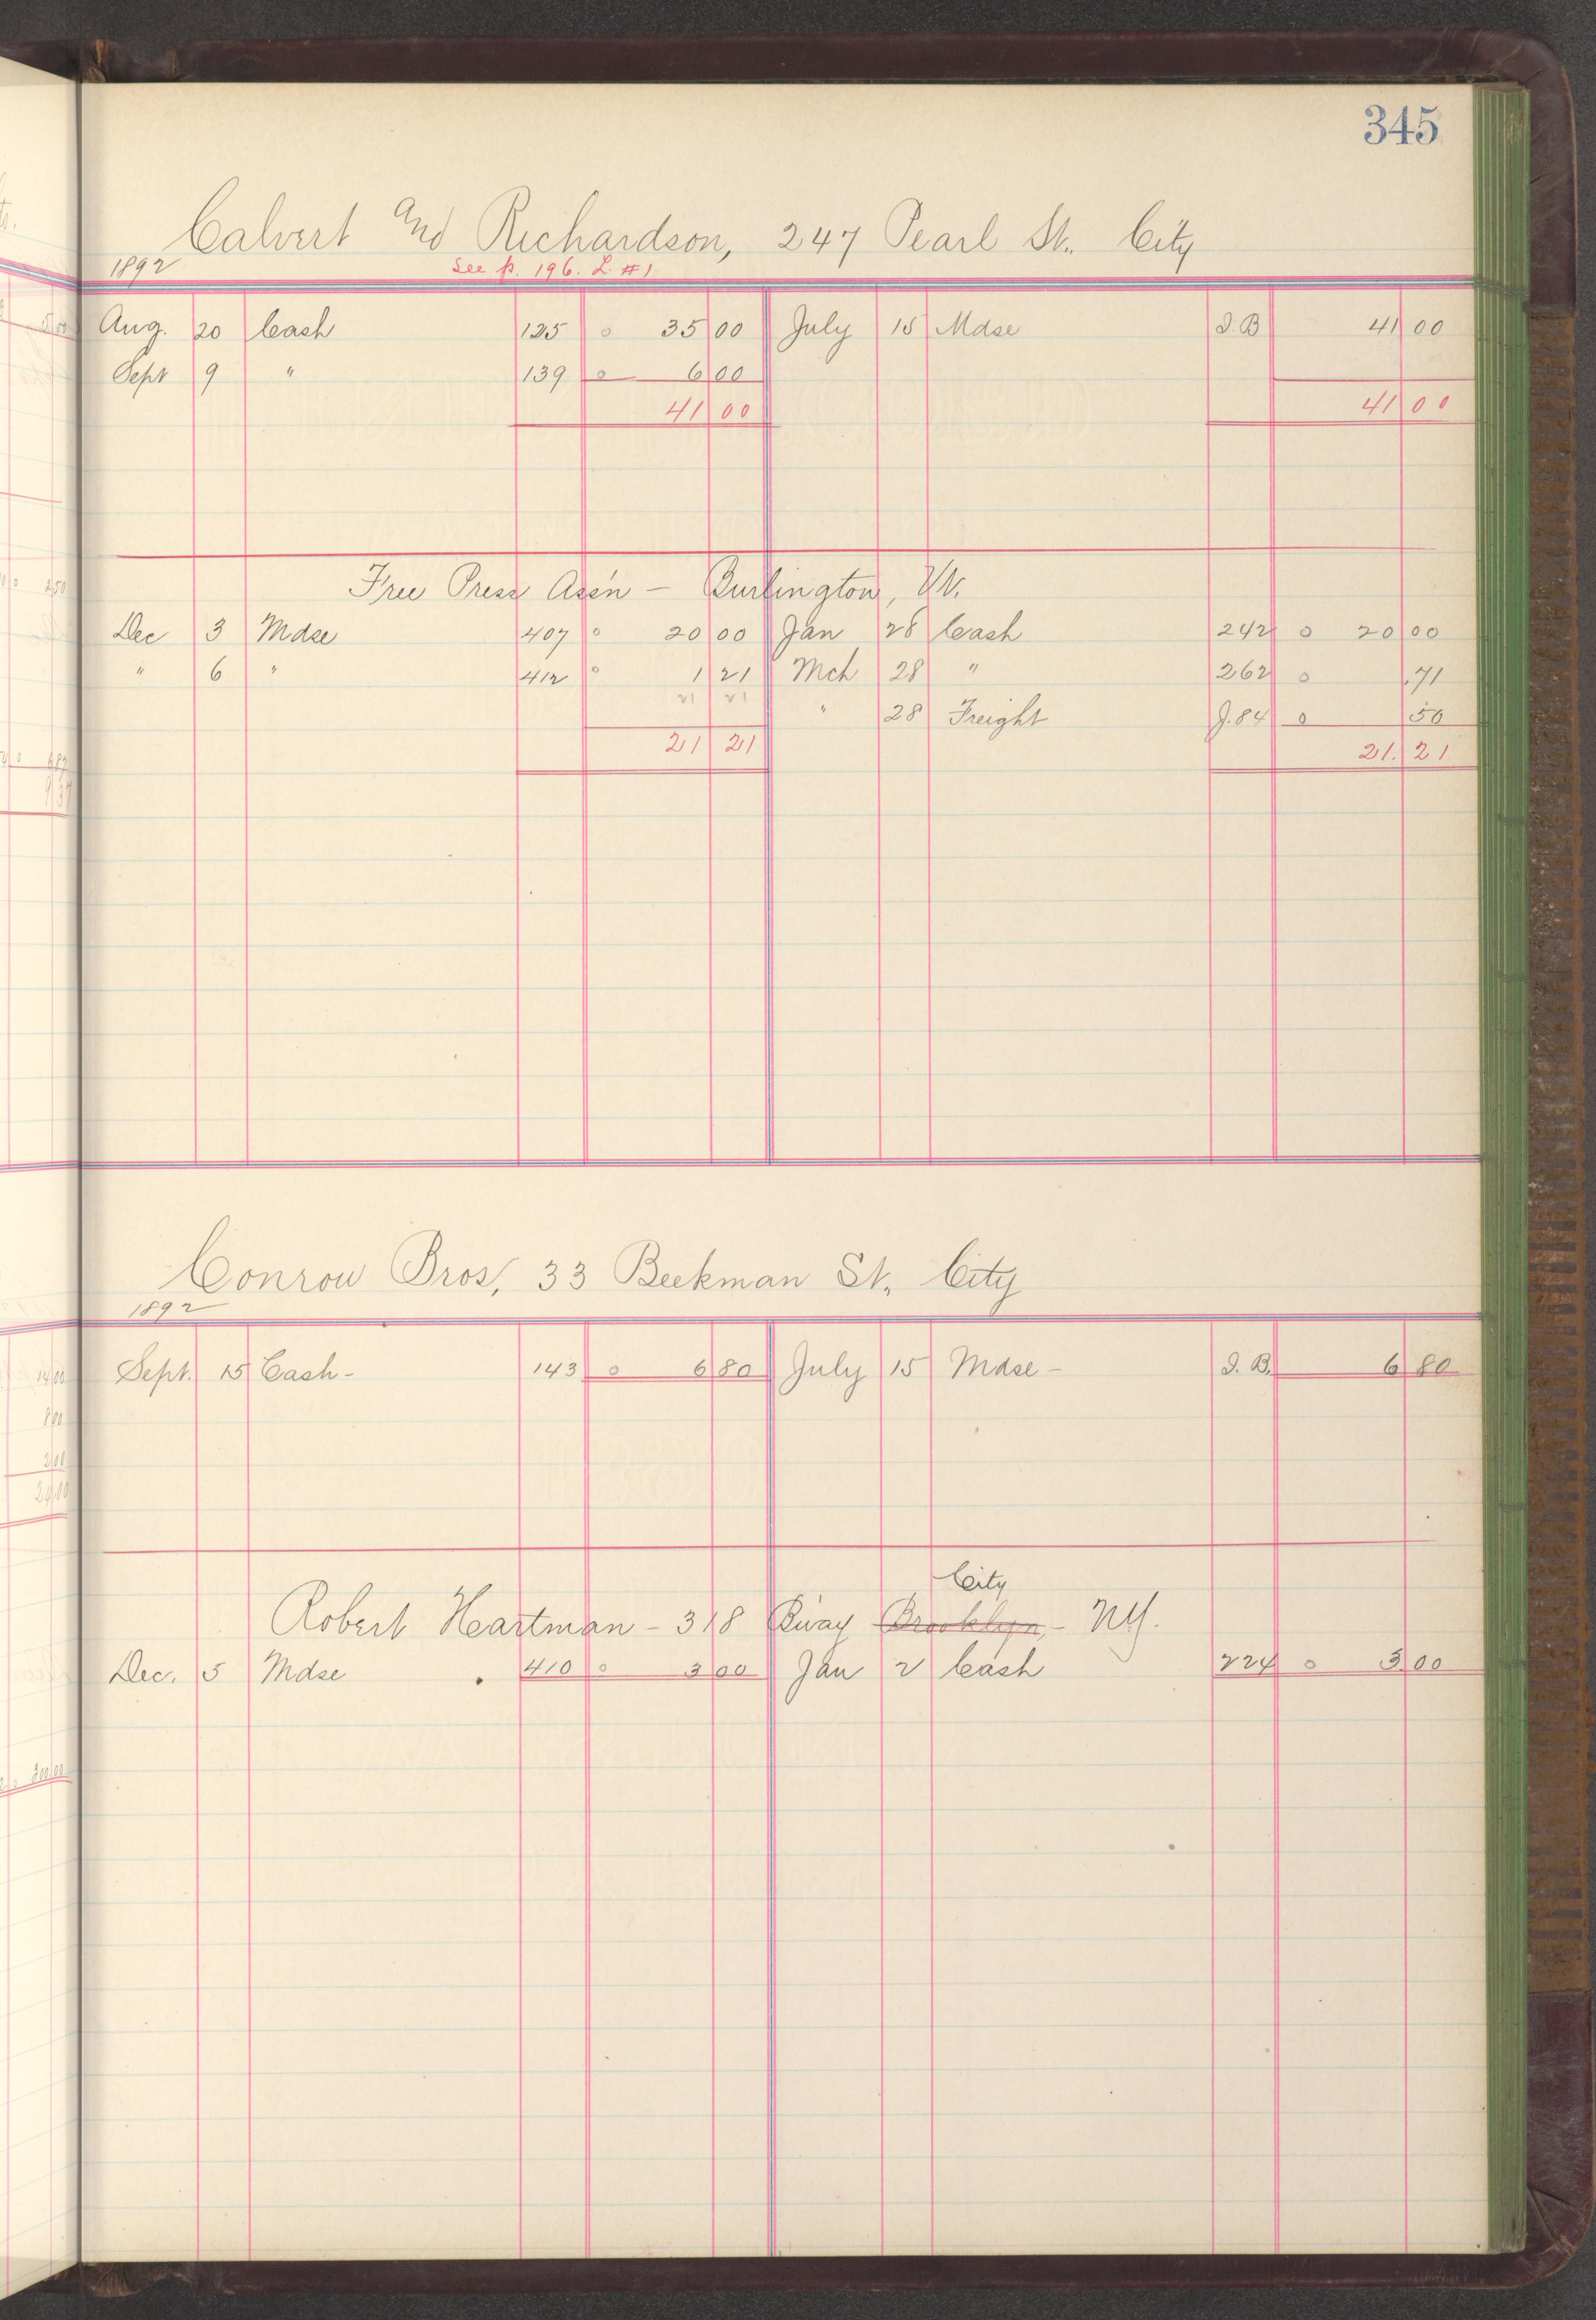 345
Calvert and Richardson, 247 Pearl St. City
1892 See p. 196. L #1
Aug. 20 Cash 125 o 35 00 July 15 Mdse I.B 41 00
Sept 9 " 139 o 6 00
41 00 41 00
Free Press Ass'n - Burlington, Vt.
Dec 3 Mdse 407 o 20 00 Jan 28 Cash 242 o 20 00
" 6 " 412 o 1 21 Mch 28 " 262 o .71
21 21 " 28 Freight J.84 o 50
21 21 21. 21
Conrow Bros, 33 Beekman St. City
1892
Sept. 15 Cash - 143 o 6 80 July 15 Mdse - I. B. 6 80
City
Robert Heartman - 318 B'way Brooklyn, - NY.
Dec. 5 Mdse 410 o 3 00 Jan 2 Cash 224 o 3.00